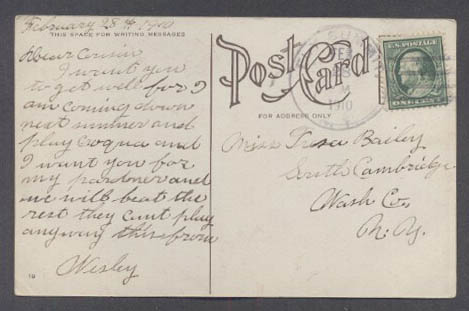 February 28th 1910
THIS SPACE FOR WRITING MESSAGES
Dear Cousin
I want you
to get well for I
am coming down
next summer and
play Croqua and
I want you for
my pardner and
we will beat the
rest they cant play
anyway this from
Wesley
10
Post Card
FOR ADDRESS ONLY
1910
N.Y.
U.S. POSTAGE
ONE CENT
Miss Tresa Bailey
South Cambridge
Wash Co.
N.Y.